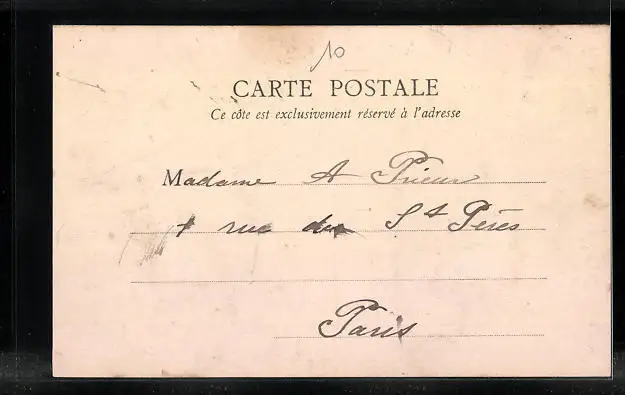 10
CARTE POSTALE
Ce côte est exclusivement réservé à l'adresse
Madame A Prieur
1 rue des St Pères
Paris